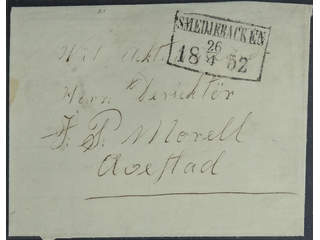 SMEDJEBACKEN
26
18 4 52
Herr Direktör
J. P. Morell
Avestad